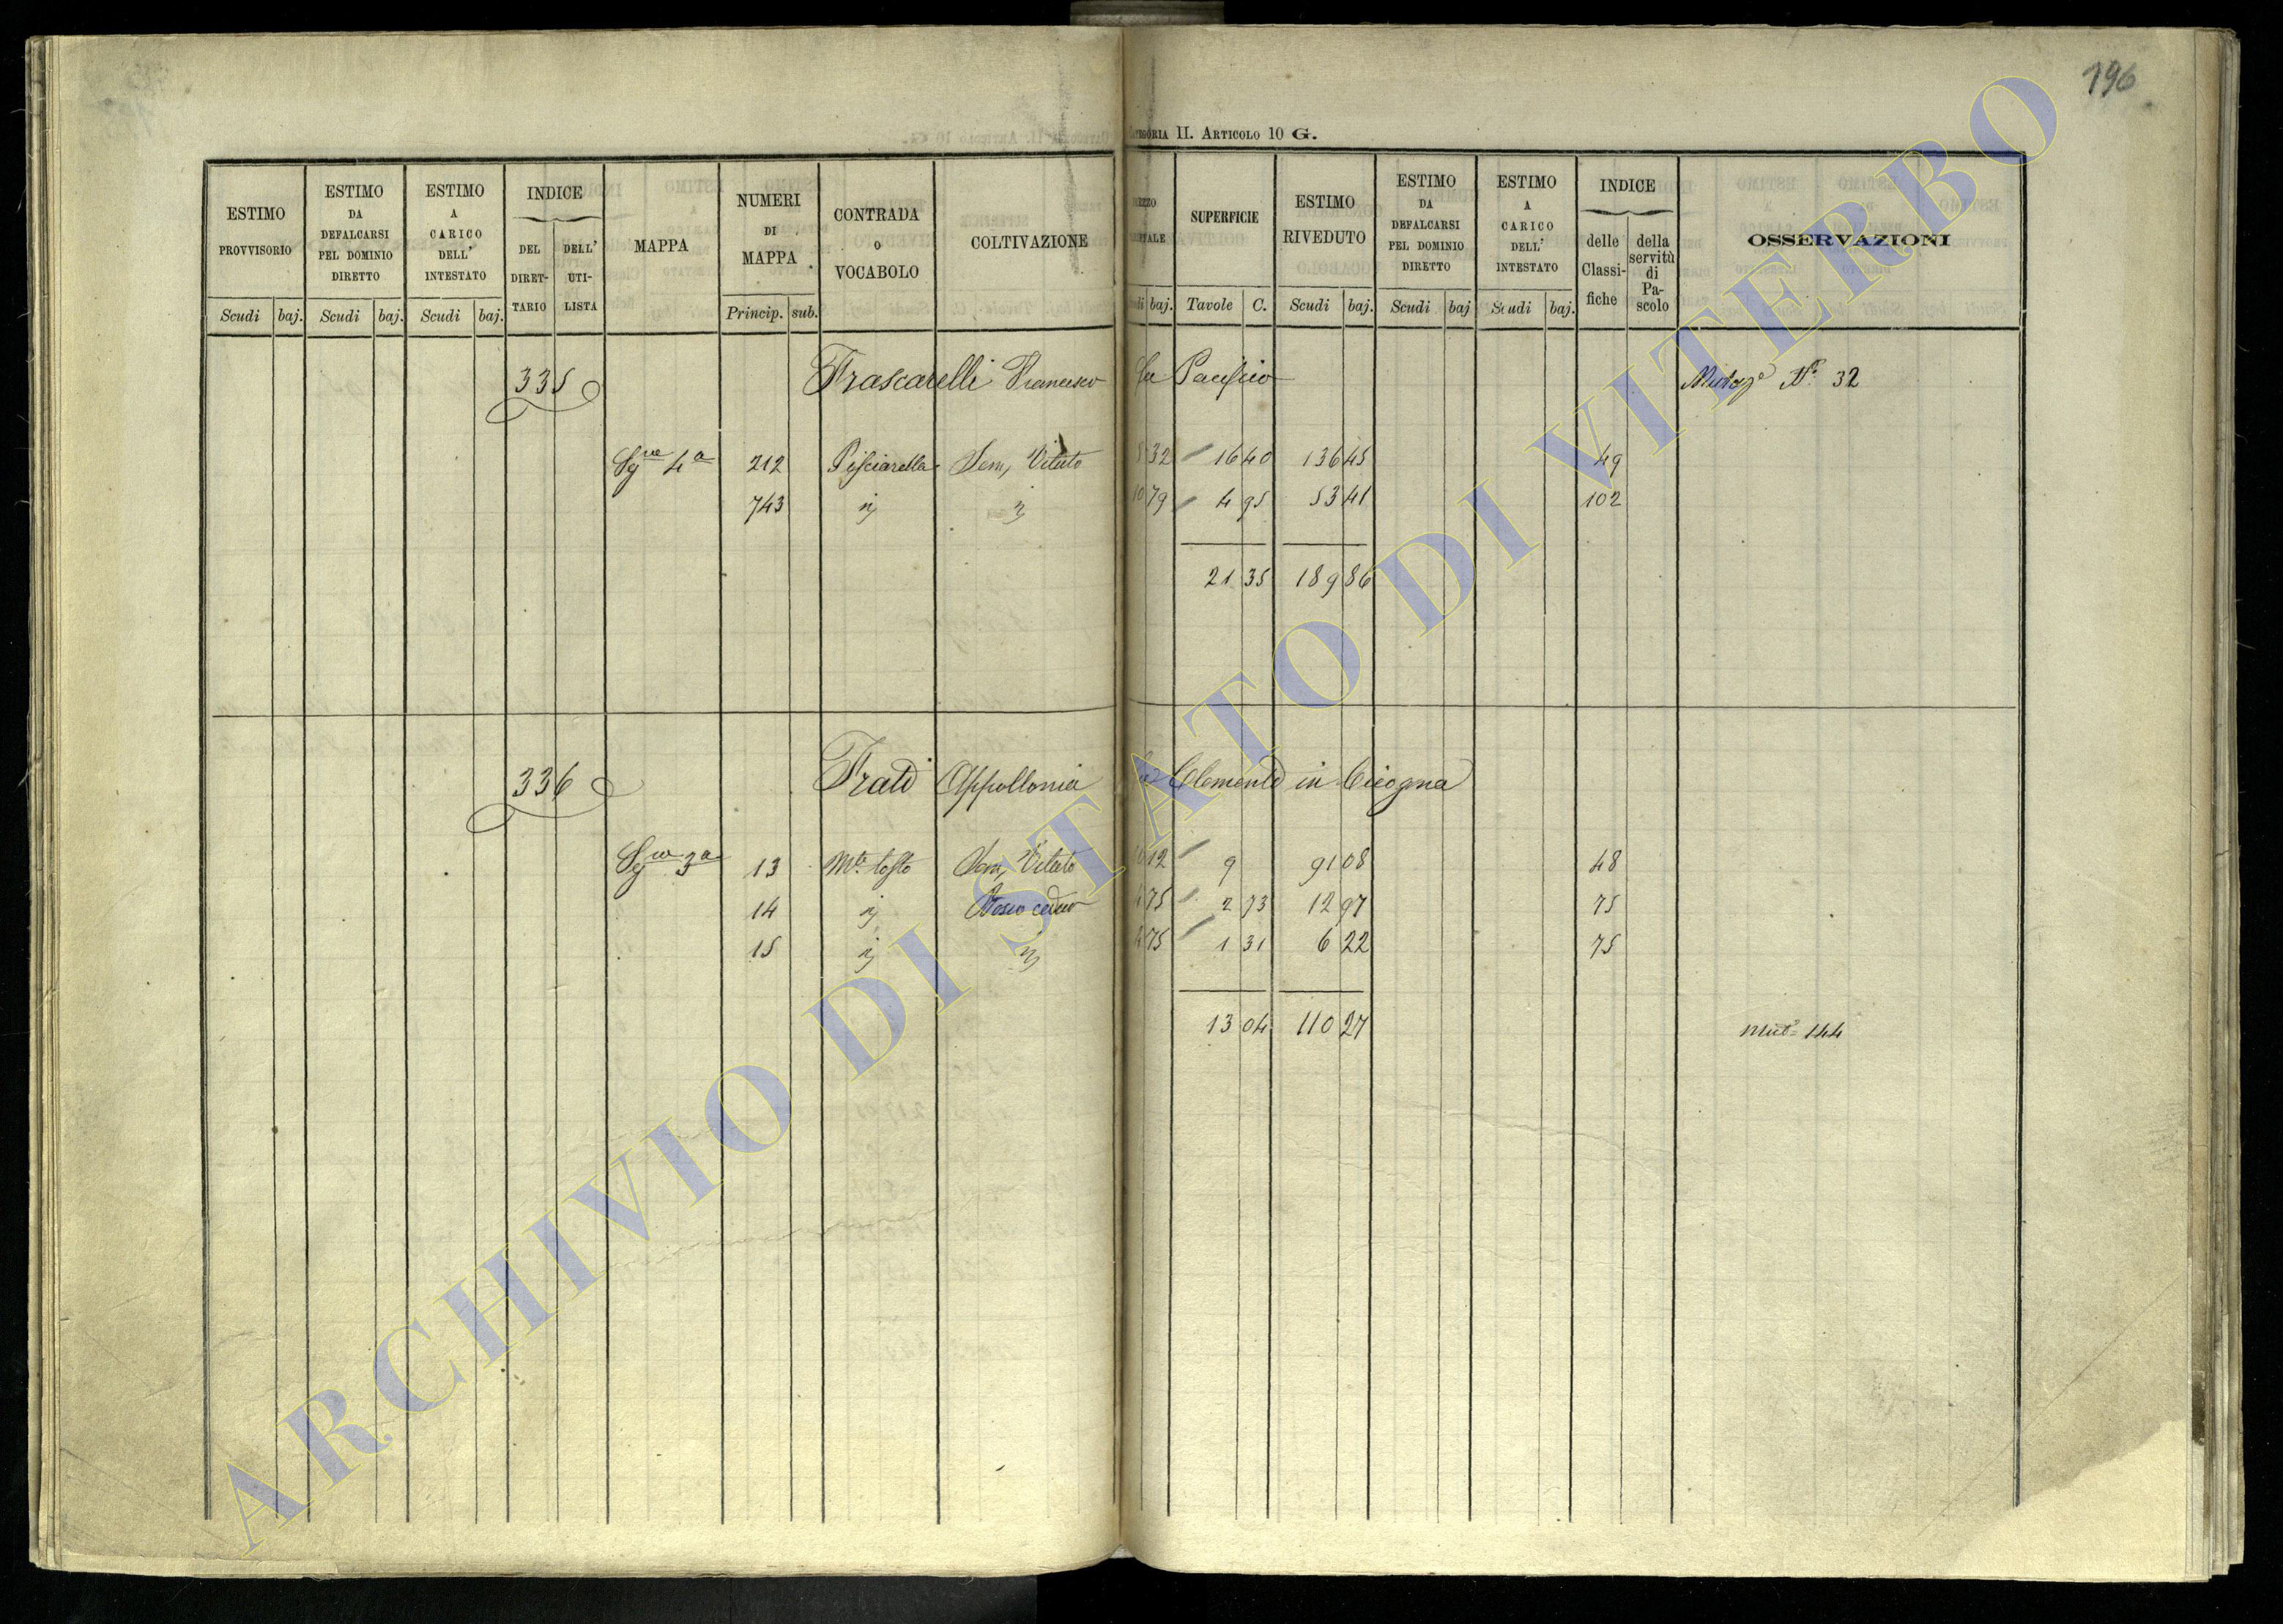 196
CATEGORIA II. ARTICOLO 10 G.
ESTIMO PROVVISORIO
ESTIMO DA DEFALCARSI PEL DOMINIO DIRETTO
ESTIMO A CARICO DELL' INTESTATO
INDICE
DEL DIRET-TARIO
DELL' UTI-LISTA
MAPPA
NUMERI DI MAPPA
CONTRADA O VOCABOLO
COLTIVAZIONE
SUPERFICIE
ESTIMO RIVEDUTO
ESTIMO DA DEFALCARSI PEL DOMINIO DIRETTO
ESTIMO A CARICO DELL' INTESTATO
INDICE
delle Classi-fiche
della servitù di Pa-scolo
OSSERVAZIONI
Scudi baj. Scudi baj. Scudi baj. Princip. sub. baj. Tavole C. Scudi baj. Scudi baj Scudi baj.
335 Frascarelli Francesco fu Pacifico N.º 32
4ª 212 Pisciarella Sem, Vitato 32 16 40 136 45 49
743 10 79 4 95 53 41 102
21 35 189 86
336 Frati Appollonia fu Clemente in Cicogna
3ª 13 Mte tosto Sem, Vitato 12 9 91 08 48
14 Bosco ceduo 75 2 73 12 97 75
15 75 1 31 6 22 75
13 04 110 27 144
ARCHIVIO DI STATO DI VITERBO